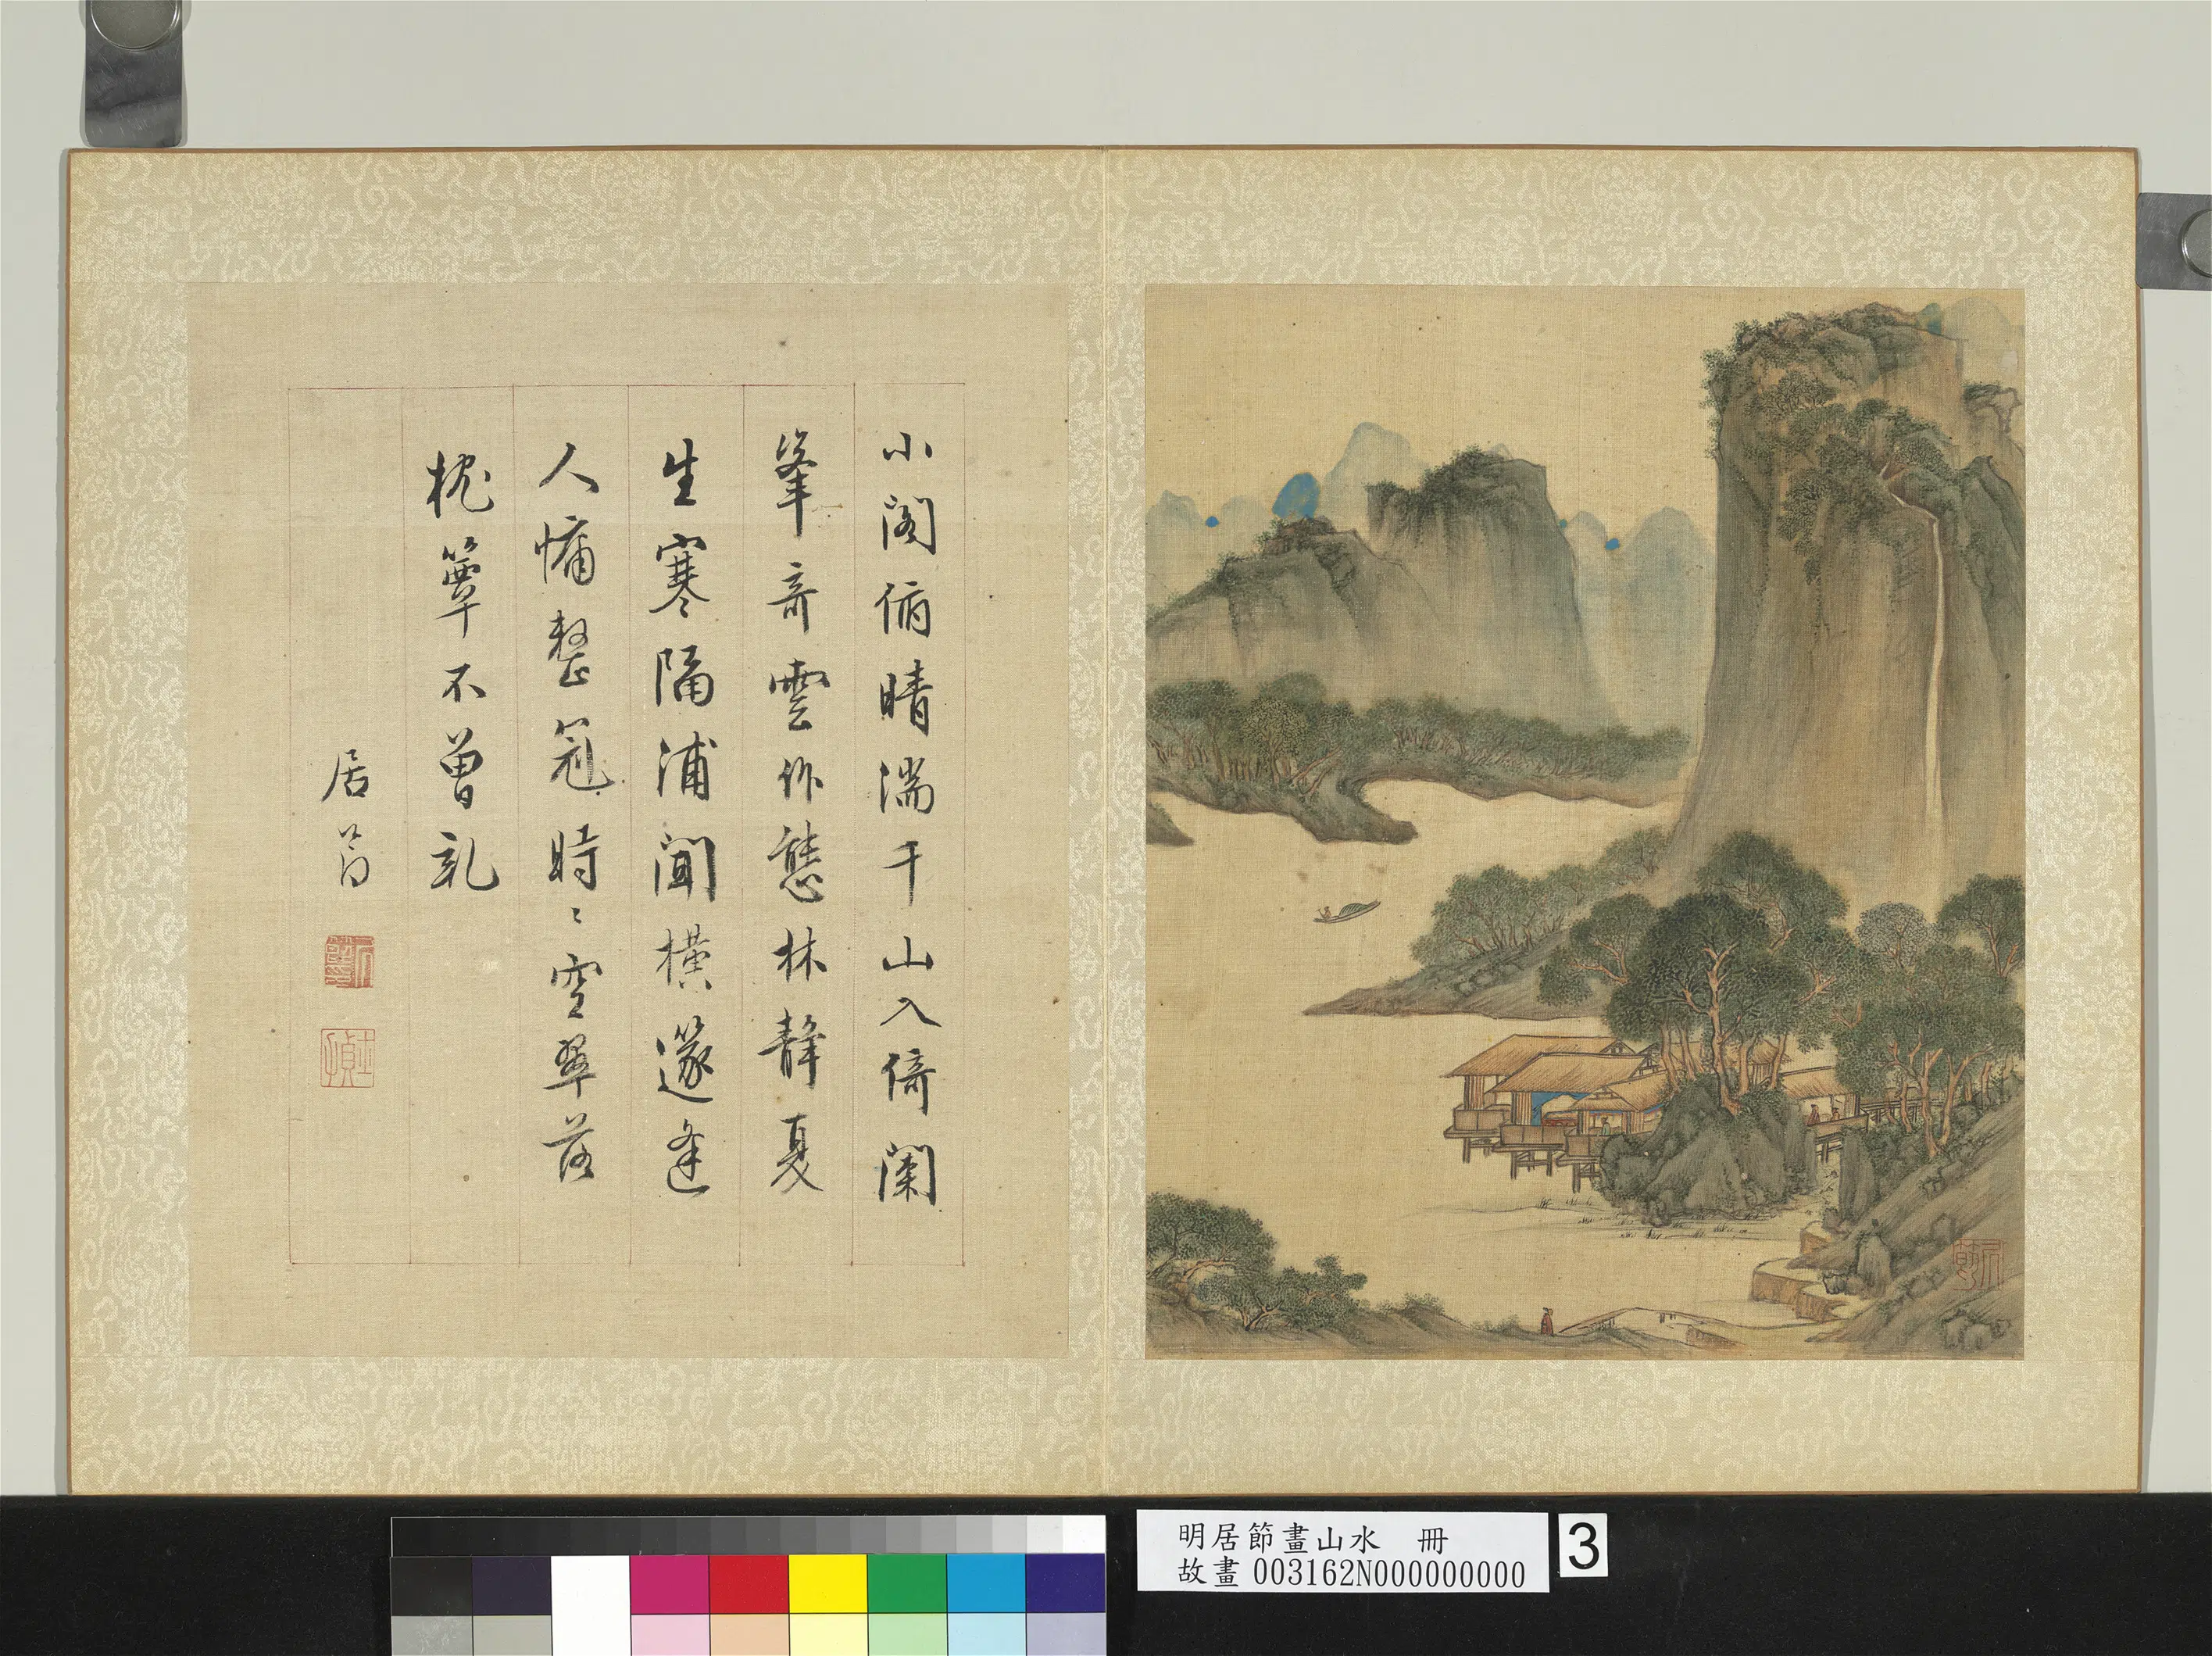 小閣俯晴湍千山入倚闌
峯奇雲作態林靜夏
生寒隔浦聞橫篴逢
人慵整冠時〻空翠落
枕簟不曾乾
居節
居節
士貞
居節
明居節畫山水 冊
故畫 003162N000000000
3